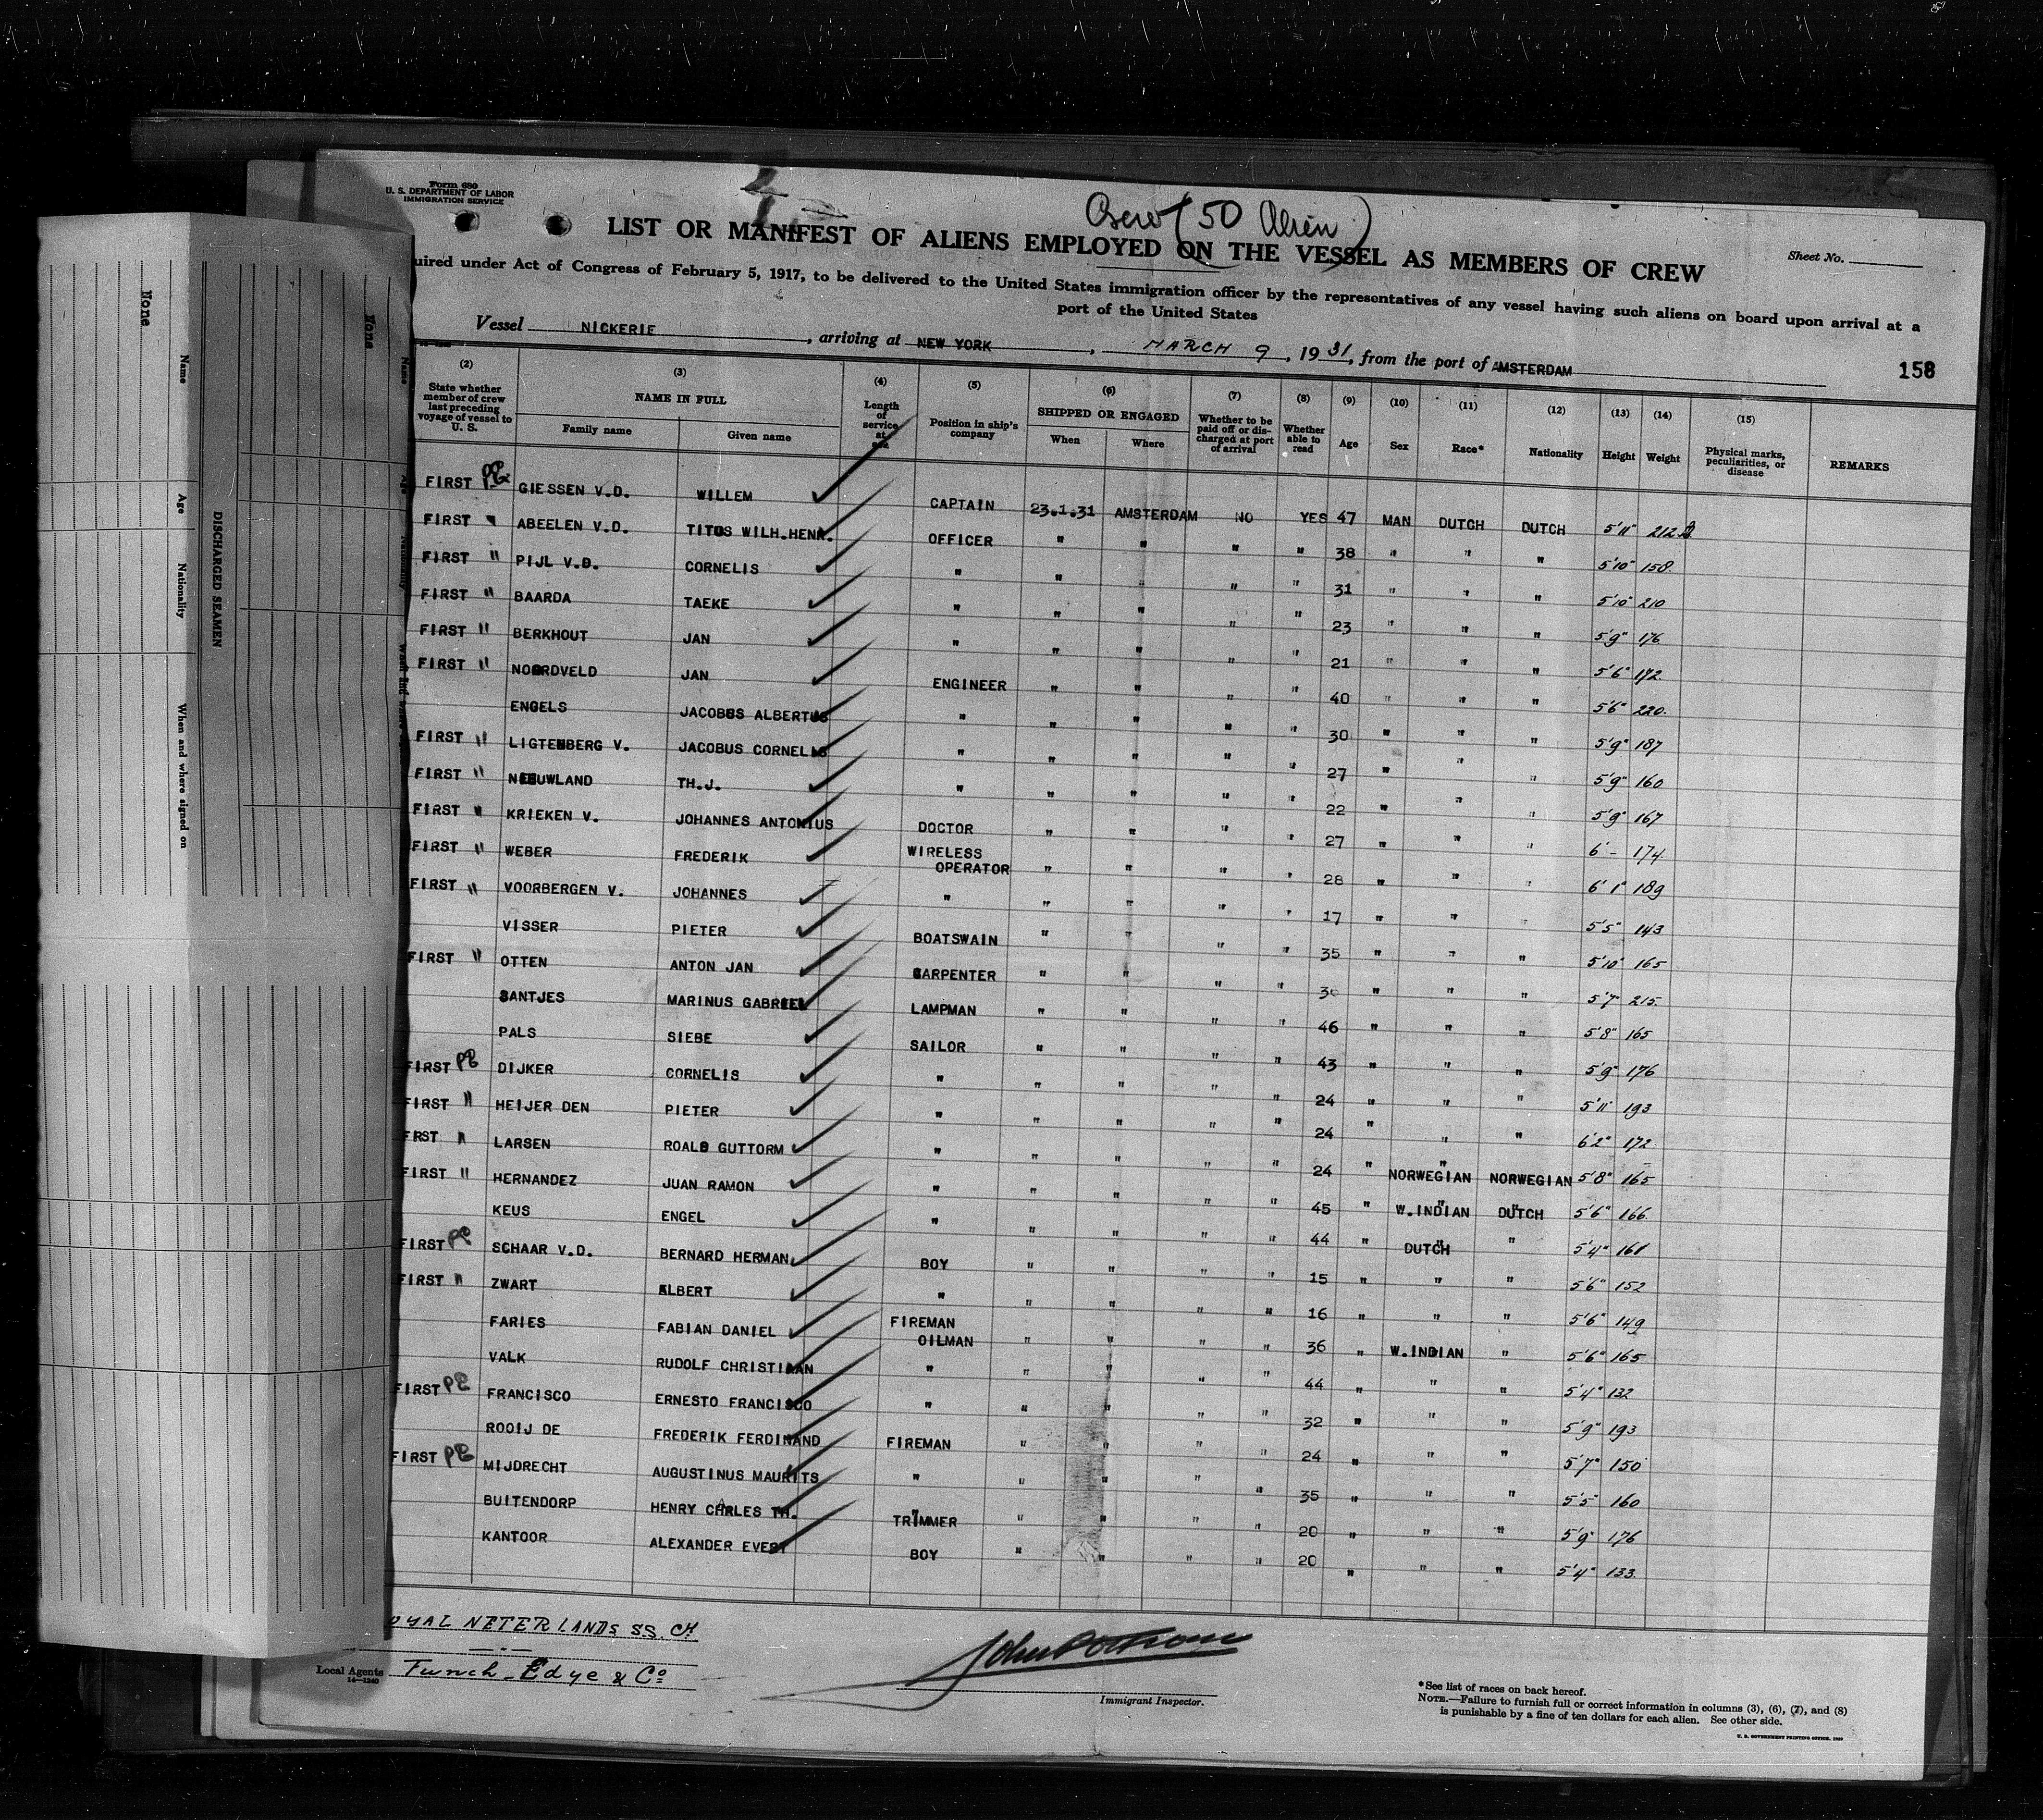 Form 680
U. S. DEPARTMENT OF LABOR
IMMIGRATION SERVICE
Crew (50 Alien)
LIST OR MANIFEST OF ALIENS EMPLOYED ON THE VESSEL AS MEMBERS OF CREW
Sheet No.
uired under Act of Congress of February 5, 1917, to be delivered to the United States immigration officer by the representatives of any vessel having such aliens on board upon arrival at a
port of the United States
Vessel NICKERIE, arriving at NEW YORK, MARCH 9, 1931, from the port of AMSTERDAM
158
(2) (3) (4) (5) (6) (7) (8) (9) (10) (11) (12) (13) (14) (15)
State whether member of crew last preceding voyage of vessel to U. S. NAME IN FULL Family name Given name Length of service at sea Position in ship's company SHIPPED OR ENGAGED When Where Whether to be paid off or discharged at port of arrival Whether able to read Age Sex Race* Nationality Height Weight Physical marks, peculiarities, or disease REMARKS
FIRST GIESSEN V.D. WILLEM CAPTAIN 23.1.31 AMSTERDAM NO YES 47 MAN DUTCH DUTCH 5'11" 212
FIRST " ABEELEN V.D. TITUS WILH.HENR. OFFICER " " " " 38 " " " 5'10" 158
FIRST " PIJL V.D. CORNELIS " " " " " 31 " " " 5'10" 210
FIRST " BAARDA TAEKE " " " " " 23 " " " 5'9" 176
FIRST " BERKHOUT JAN " " " " " 21 " " " 5'6" 172
FIRST " NOORDVELD JAN ENGINEER " " " " 40 " " " 5'6" 220
ENGELS JACOBUS ALBERTUS " " " " " 30 " " " 5'9" 187
FIRST " LIGTENBERG V. JACOBUS CORNELIS " " " " " 27 " " " 5'9" 160
FIRST " NIEUWLAND TH.J. " " " " " 22 " " " 5'9" 167
FIRST " KRIEKEN V. JOHANNES ANTONIUS DOCTOR " " " " 27 " " " 6'- 174
FIRST " WEBER FREDERIK WIRELESS OPERATOR " " " " 28 " " " 6'1" 189
FIRST " VOORBERGEN V. JOHANNES " " " " " 17 " " " 5'5" 143
VISSER PIETER BOATSWAIN " " " " 35 " " " 5'10" 165
FIRST " OTTEN ANTON JAN CARPENTER " " " " " " " 5'7" 215
SANTJES MARINUS GABRIEL LAMPMAN " " " " 46 " " " 5'8" 165
PALS SIEBE SAILOR " " " " 43 " " " 5'9" 176
FIRST DIJKER CORNELIS " " " " " 24 " " " 5'11" 193
FIRST " HEIJER DEN PIETER " " " " " 24 " " " 6'2" 172
FRST " LARSEN ROALD GUTTORM " " " " " 24 " NORWEGIAN NORWEGIAN 5'8" 165
FIRST " HERNANDEZ JUAN RAMON " " " " " 45 " W.INDIAN DUTCH 5'6" 166
KEUS ENGEL " " " " " 44 " DUTCH " 5'4" 161
FIRST SCHAAR V.D. BERNARD HERMAN BOY " " " " 15 " " " 5'6" 152
FIRST " ZWART ALBERT " " " " " 16 " " " 5'6" 149
FARIES FABIAN DANIEL FIREMAN OILMAN " " " " 36 " W.INDIAN " 5'6" 165
VALK RUDOLF CHRISTIAAN " " " " " 44 " " " 5'4" 132
FIRST FRANCISCO ERNESTO FRANCISCO " " " " " 32 " " " 5'9" 193
ROOIJ DE FREDERIK FERDINAND FIREMAN " " " " 24 " " " 5'7" 150
FIRST MIJDRECHT AUGUSTINUS MAURITS " " " " " 35 " " " 5'5" 160
BUITENDORP HENRY CARLES TH. TRIMMER " " " " 20 " " " 5'9" 176
KANTOOR ALEXANDER EVERT BOY " " " " 20 " " " 5'4" 133
OYAL NETERLANDS S.S. CY
Local Agents Funch Edye & Co
14—1240
Immigrant Inspector.
*See list of races on back hereof.
NOTE.—Failure to furnish full or correct information in columns (3), (6), (7), and (8)
is punishable by a fine of ten dollars for each alien. See other side.
U. S. GOVERNMENT PRINTING OFFICE
None
None
Name Age Nationality When and where signed on
DISCHARGED SEAMEN